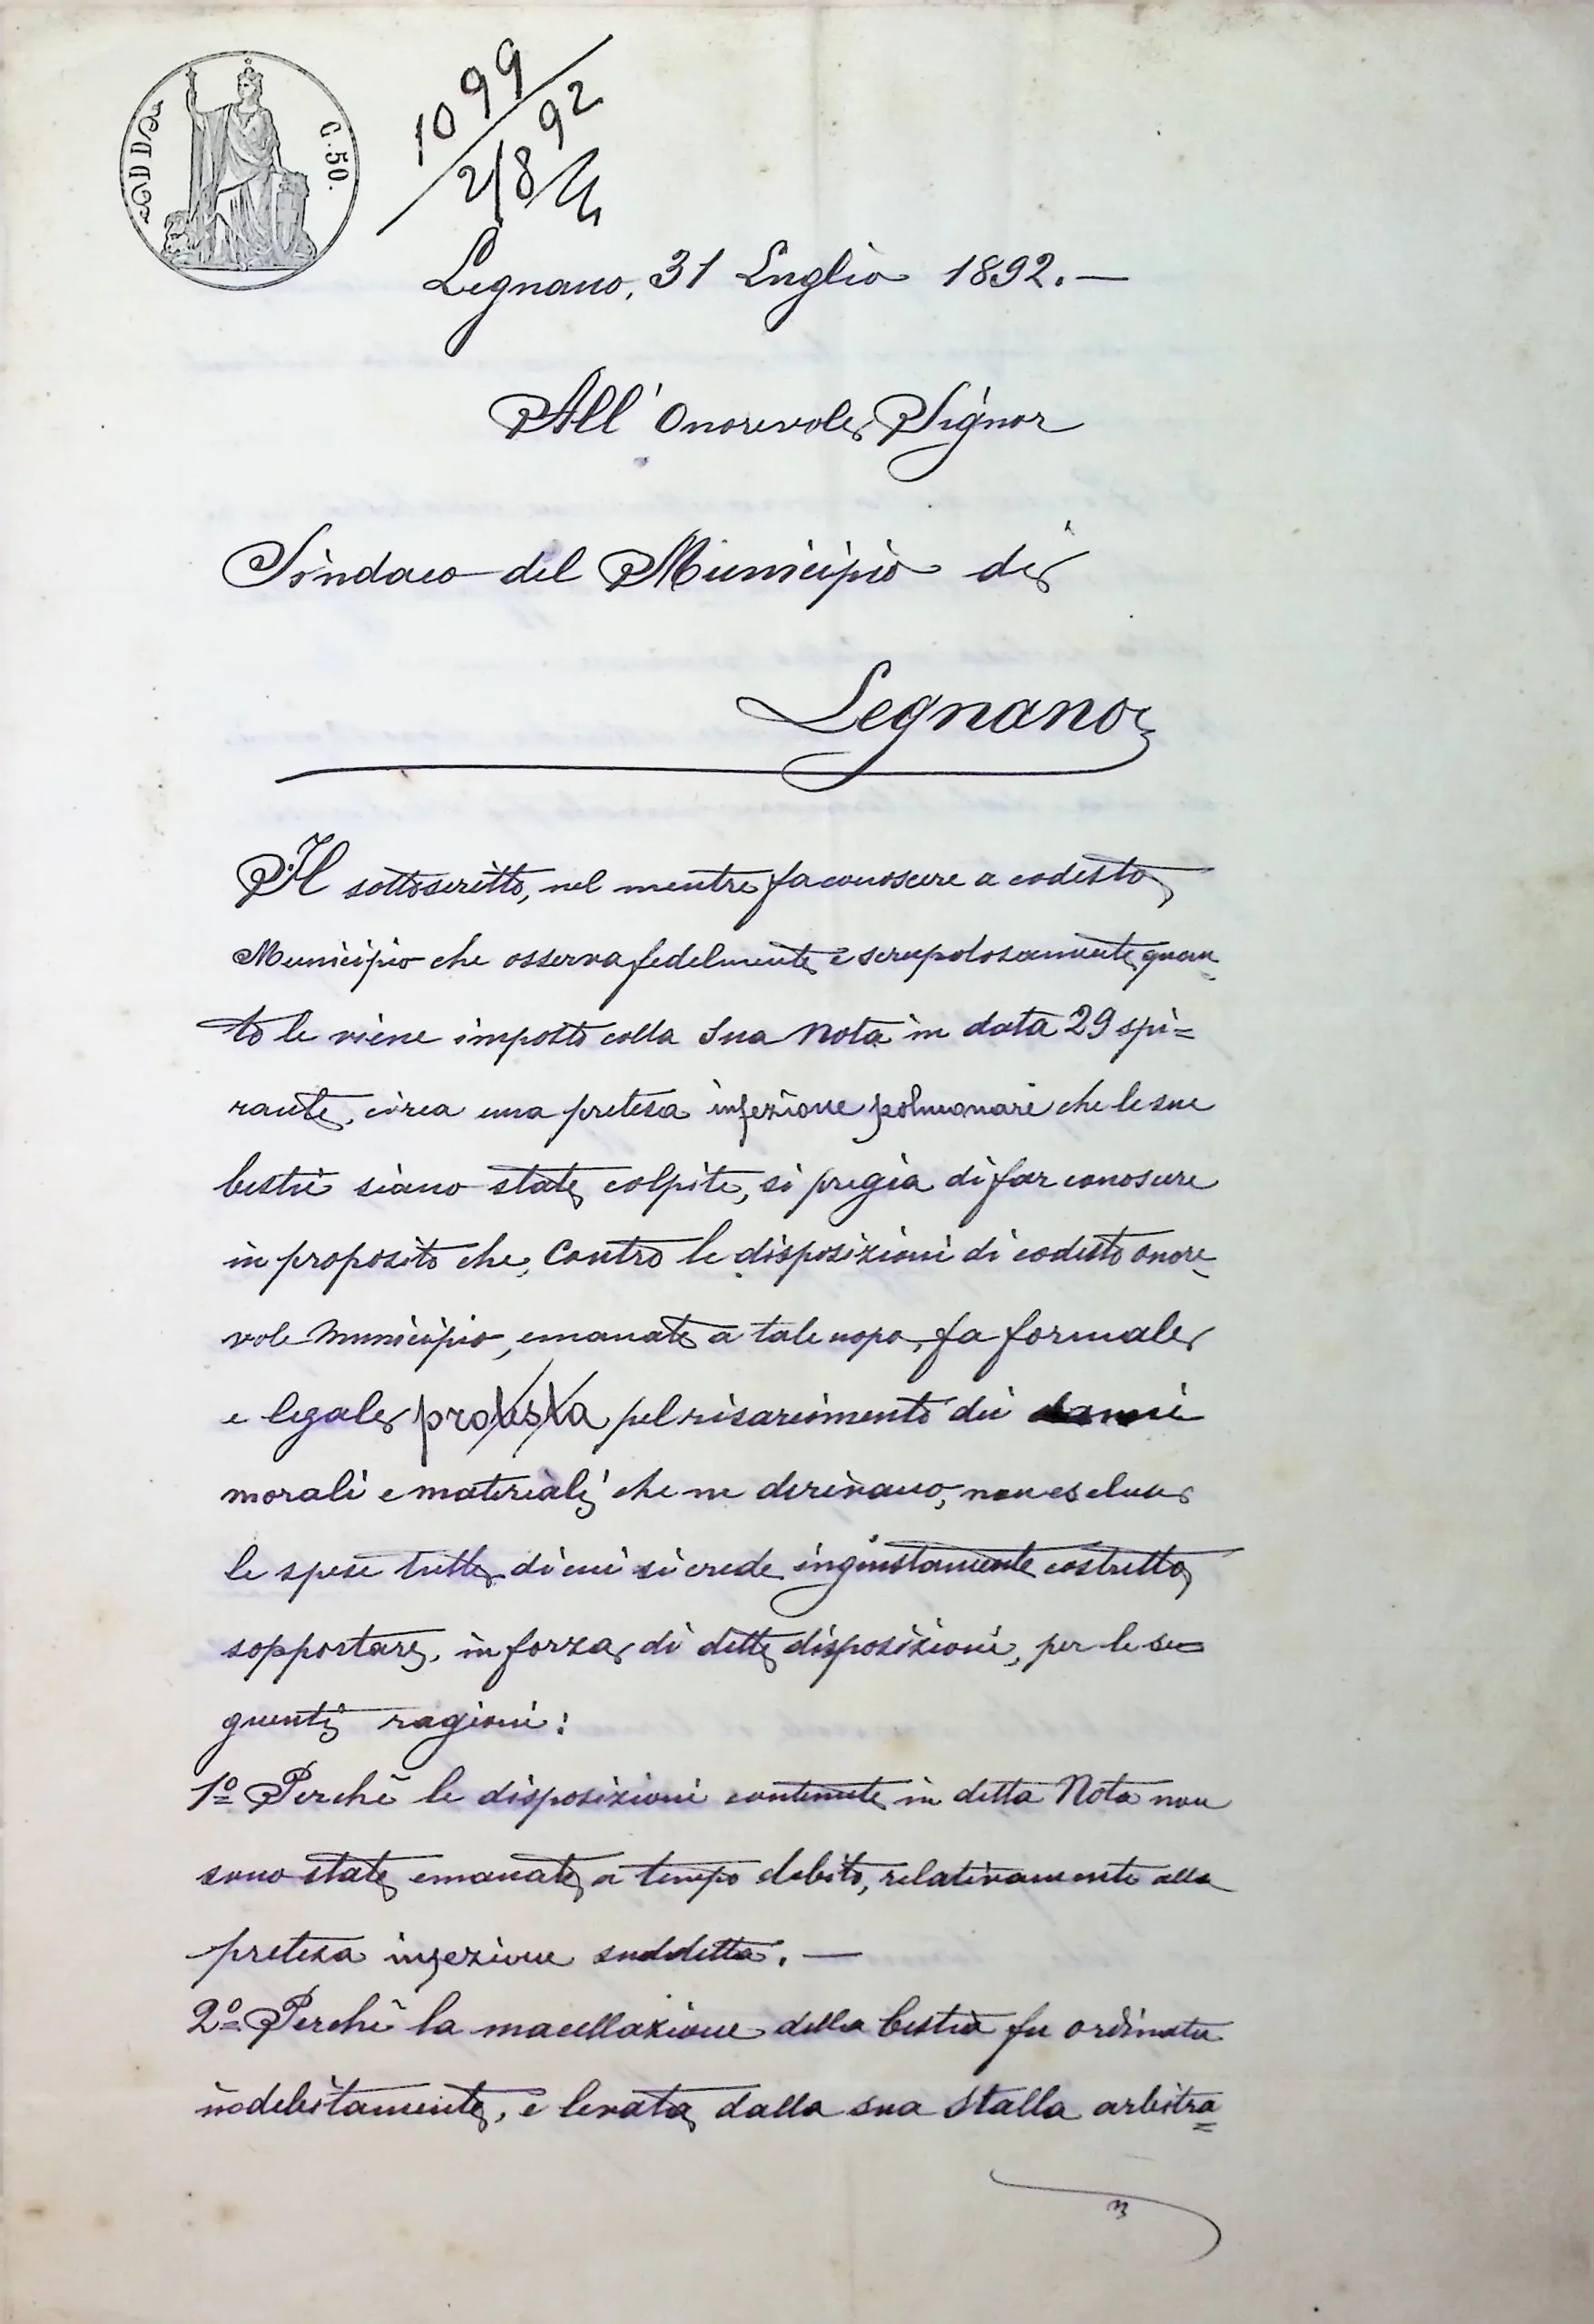 C. 50.
1099
2/8 92
Legnano, 31 Luglio 1892. —
All' Onorevole Signor
Sindaco del Municipio di
Legnano
Il sottoscritto, nel mentre fa conoscere a codesto
Municipio che osserva fedelmente e scrupolosamente quan=
to le viene imposto colla Sua Nota in data 29 spi=
rante, circa una pretesa infezione polmonare che le sue
bestie siano state colpite, si pregia di far conoscere
in proposito che, contro le disposizioni di codesto onore=
vole Municipio, emanate a tale uopo, fa formale
e legale protesta pel risarcimento dei danni
morali e materiali che ne derivano, non escluse
le spese tutte di cui si crede ingiustamente costretto
sopportare, in forza di dette disposizioni, per le se=
guenti ragioni:
1º Perchè le disposizioni contenute in detta Nota non
sono state emanate a tempo debito, relativamente alla
pretesa infezione suddetta. —
2º Perchè la macellazione della bestia fu ordinata
indebitamente, e levata dalla sua stalla arbitra=